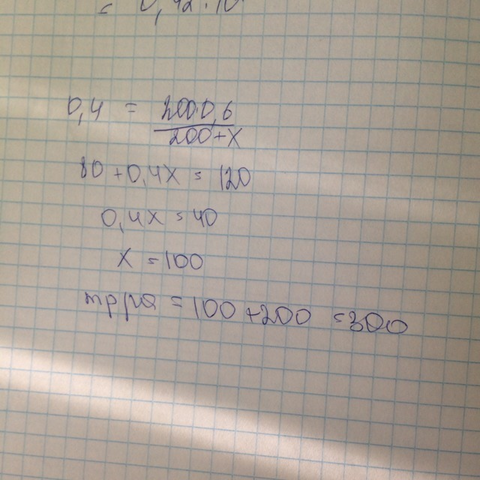 0,4 = 200·0,6
200+x
80+0,4x = 120
0,4x = 40
x = 100
mр-ра = 100+200 = 300